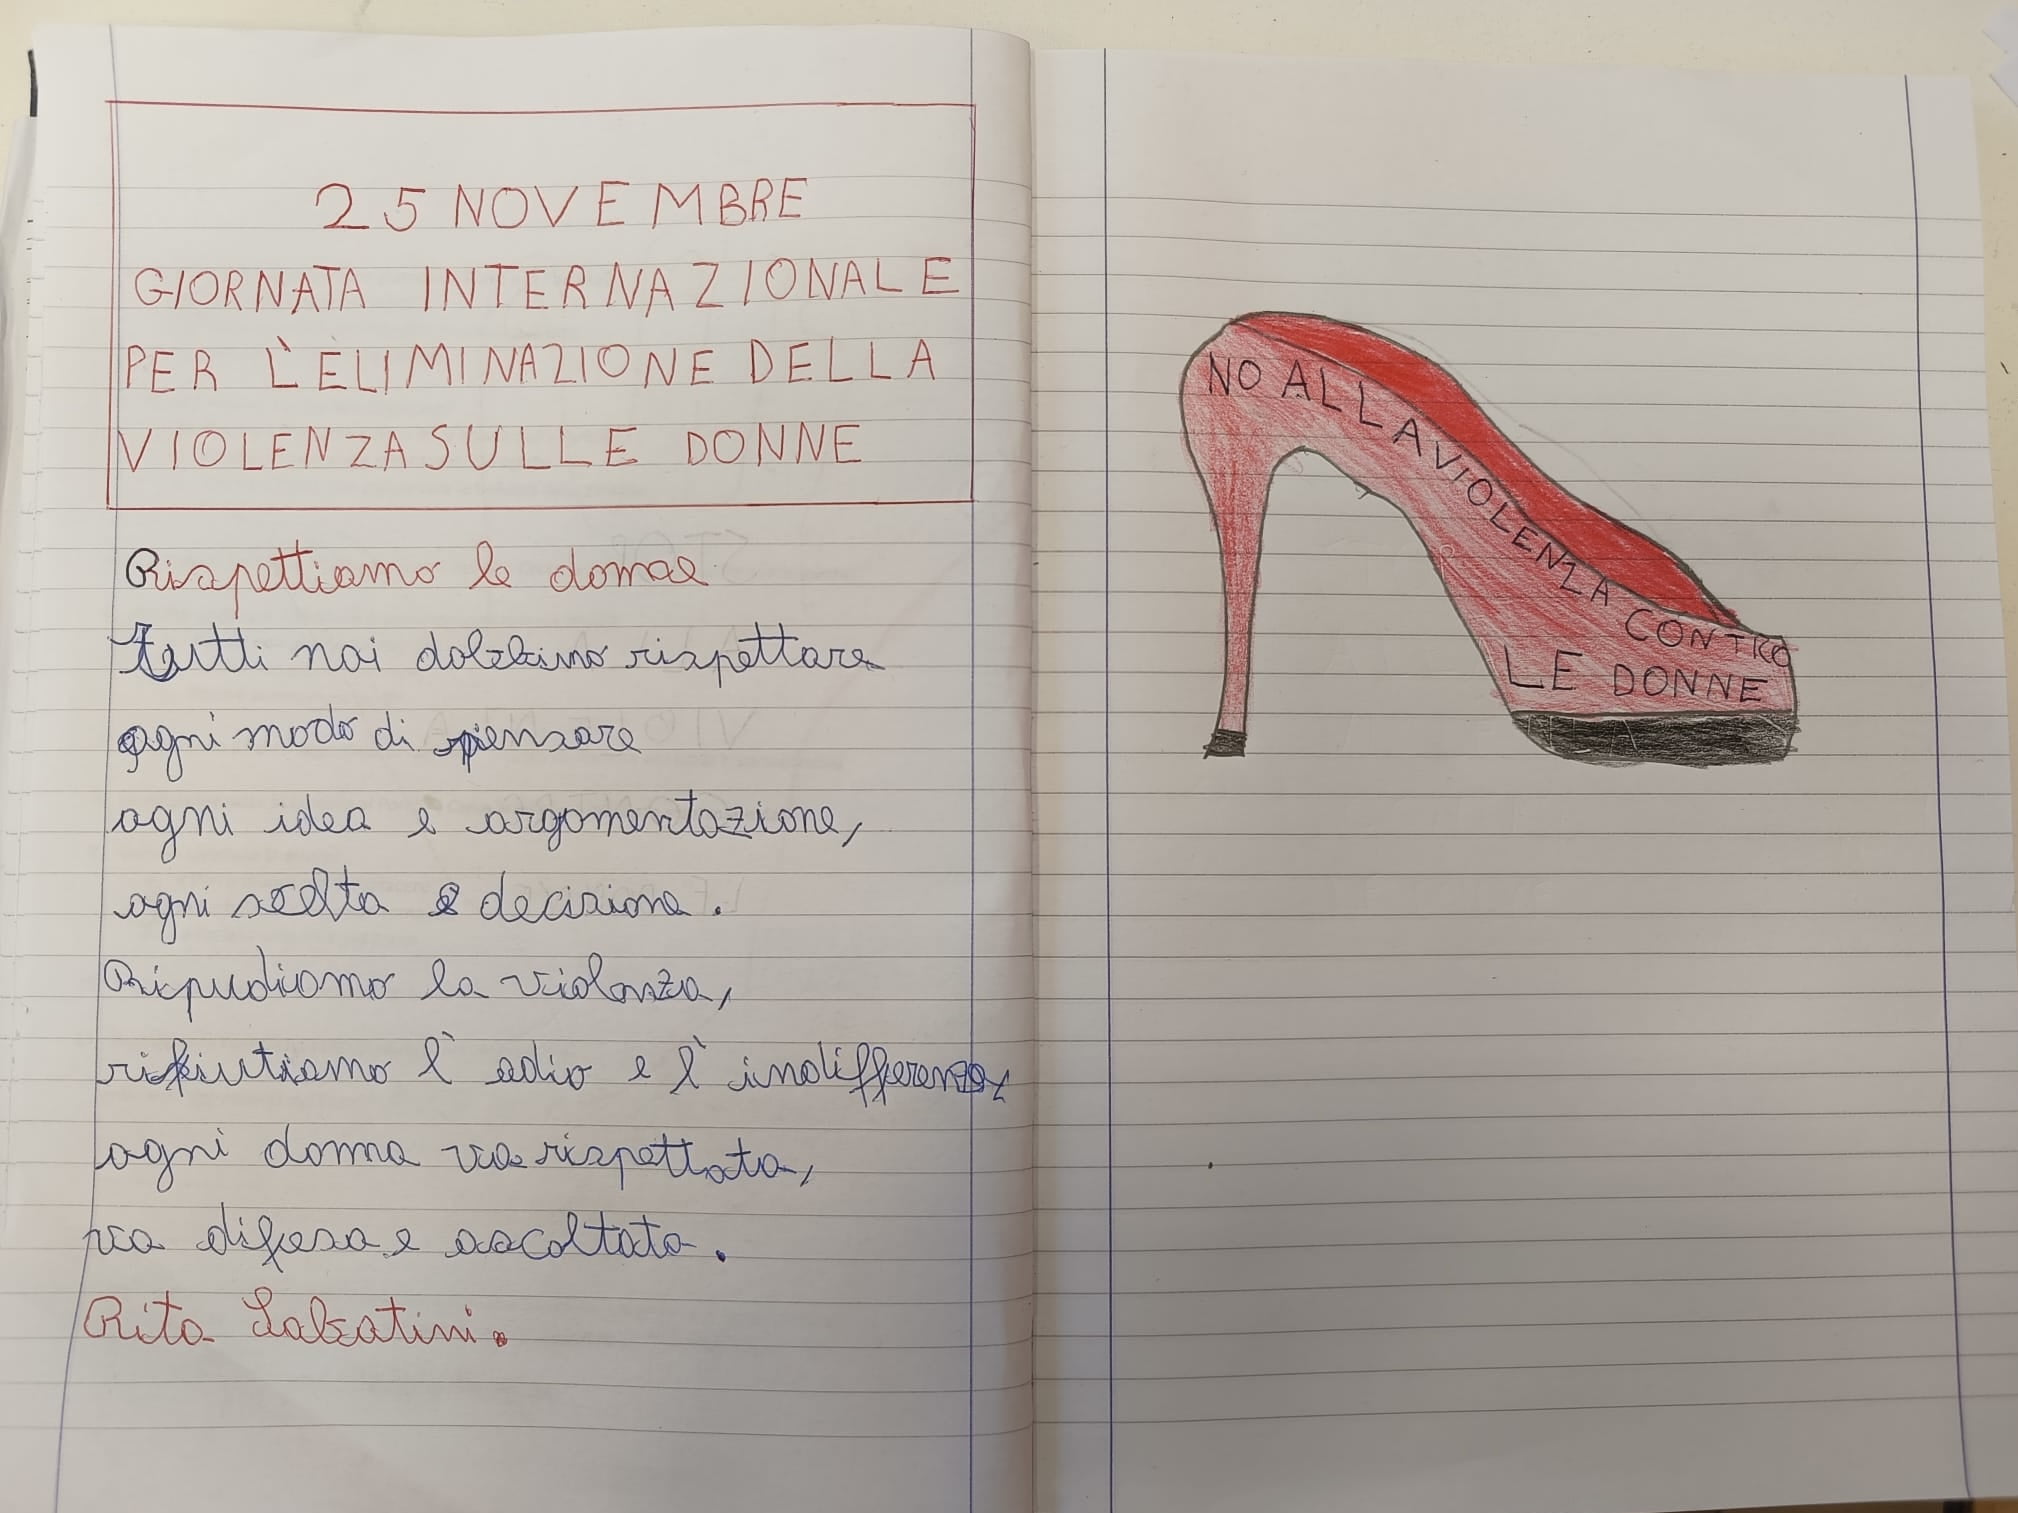 25 NOVEMBRE
GIORNATA INTERNAZIONALE
PER L'ELIMINAZIONE DELLA
VIOLENZA SULLE DONNE
Rispettiamo le donne
Tutti noi dobbiamo rispettare
ogni modo di pensare
ogni idea e argomentazione,
ogni scelta e decisione.
Ripudiamo la violenza,
rifiutiamo l'odio e l'indifferenza,
ogni donna va rispettata,
va difesa e ascoltata.
Rita Sabatini.
NO ALLA VIOLENZA CONTRO
LE DONNE